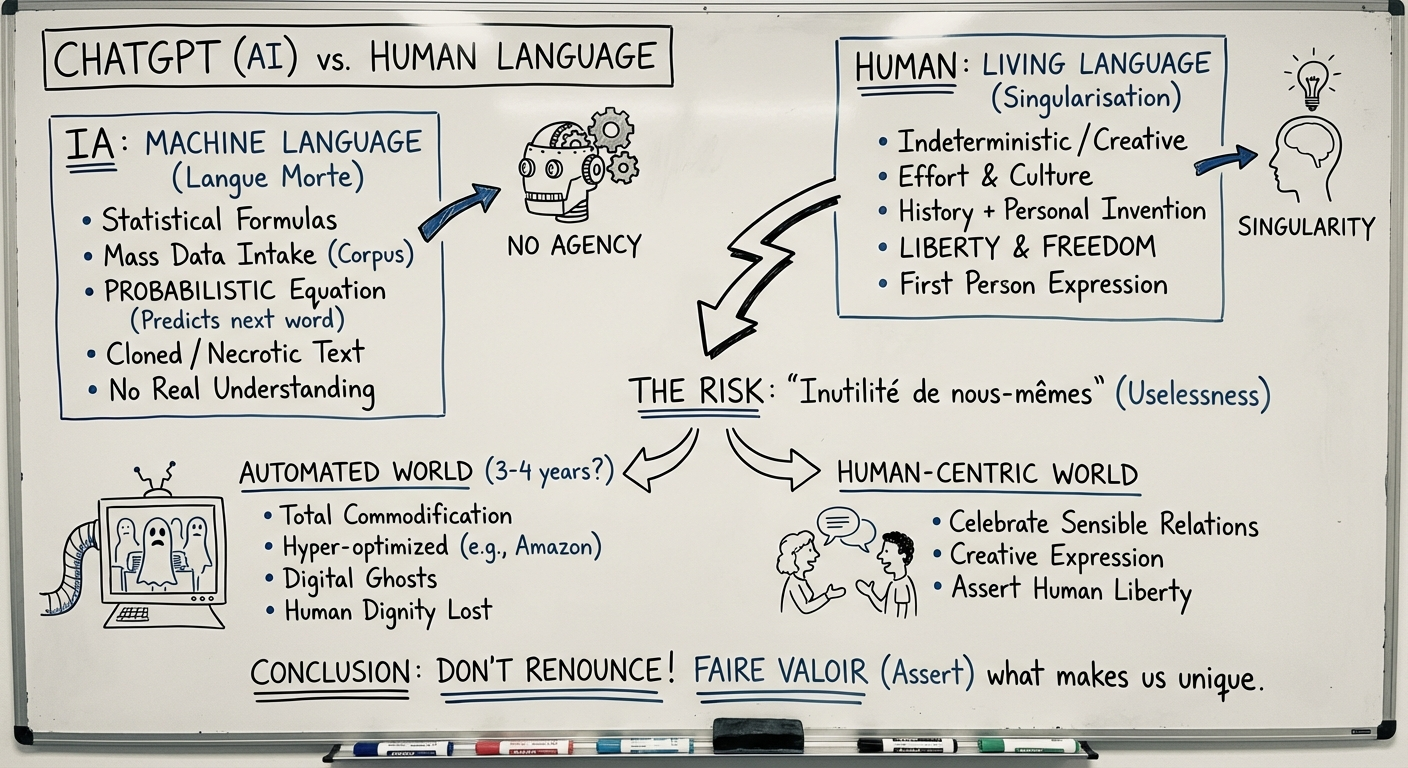 CHATGPT (AI) vs. HUMAN LANGUAGE
IA: MACHINE LANGUAGE
(Langue Morte)
• Statistical Formulas
• Mass Data Intake (Corpus)
• PROBABILISTIC Equation
(Predicts next word)
• Cloned / Necrotic Text
• No Real Understanding
NO AGENCY
HUMAN: LIVING LANGUAGE
(Singularisation)
• Indeterministic / Creative
• Effort & Culture
• History + Personal Invention
• LIBERTY & FREEDOM
• First Person Expression
SINGULARITY
THE RISK: "Inutilité de nous-mêmes" (Uselessness)
AUTOMATED WORLD (3-4 years?)
• Total Commodification
• Hyper-optimized (e.g., Amazon)
• Digital Ghosts
• Human Dignity Lost
HUMAN-CENTRIC WORLD
• Celebrate Sensible Relations
• Creative Expression
• Assert Human Liberty
CONCLUSION: DON'T RENOUNCE! FAIRE VALOIR (Assert) what makes us unique.